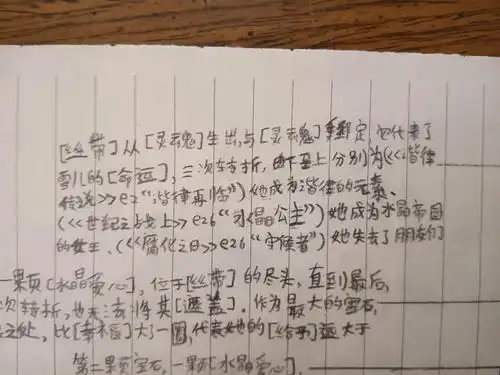 [丝带]从[灵魂]生出,与[灵魂]绑定,它代表了
雪儿的[命运],三次转折,由下至上分别为(<<谐律
传说>>e2“谐律再临”)她成为谐律的元素、
(<<世纪之战上>>e26“水晶公主”)她成为水晶帝国
的女王、(<<腐化之日>>e26“守候者”)她失去了朋友们
一颗页[水晶爱心],位于[丝带]的尽头,直到最后,
次转折,也无法将其[遮盖]。作为最大的宝石,
之处,比[幸福]大了一圈,代表她的[结乎]大于
第二颗页宝石,一颗[水晶爱心],